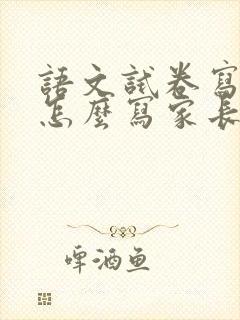 語文試卷寫
怎麼寫家長
啤酒魚